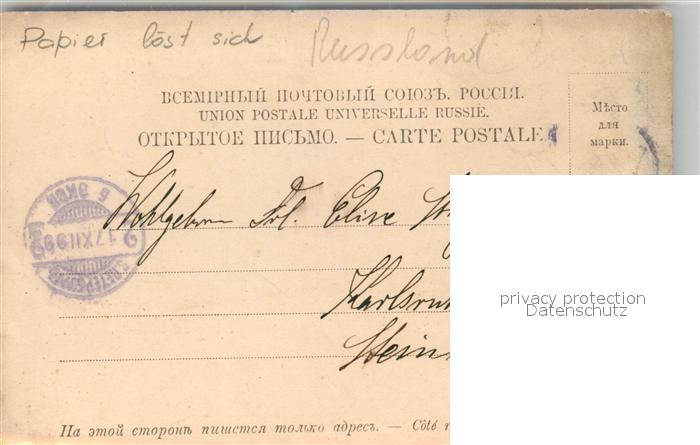 Papier löst sich
Russland
ВСЕМІРНЫЙ ПОЧТОВЫЙ СОЮЗЪ. РОССІЯ.
UNION POSTALE UNIVERSELLE RUSSIE.
ОТКРЫТОЕ ПИСЬМО. — CARTE POSTALE.
Мѣсто
для
марки.
Wohlgeborn Frl. Elise
17 XII 99
Karlsru
Stein
privacy protection
Datenschutz
На этой сторонѣ пишется только адресъ. — Côté r